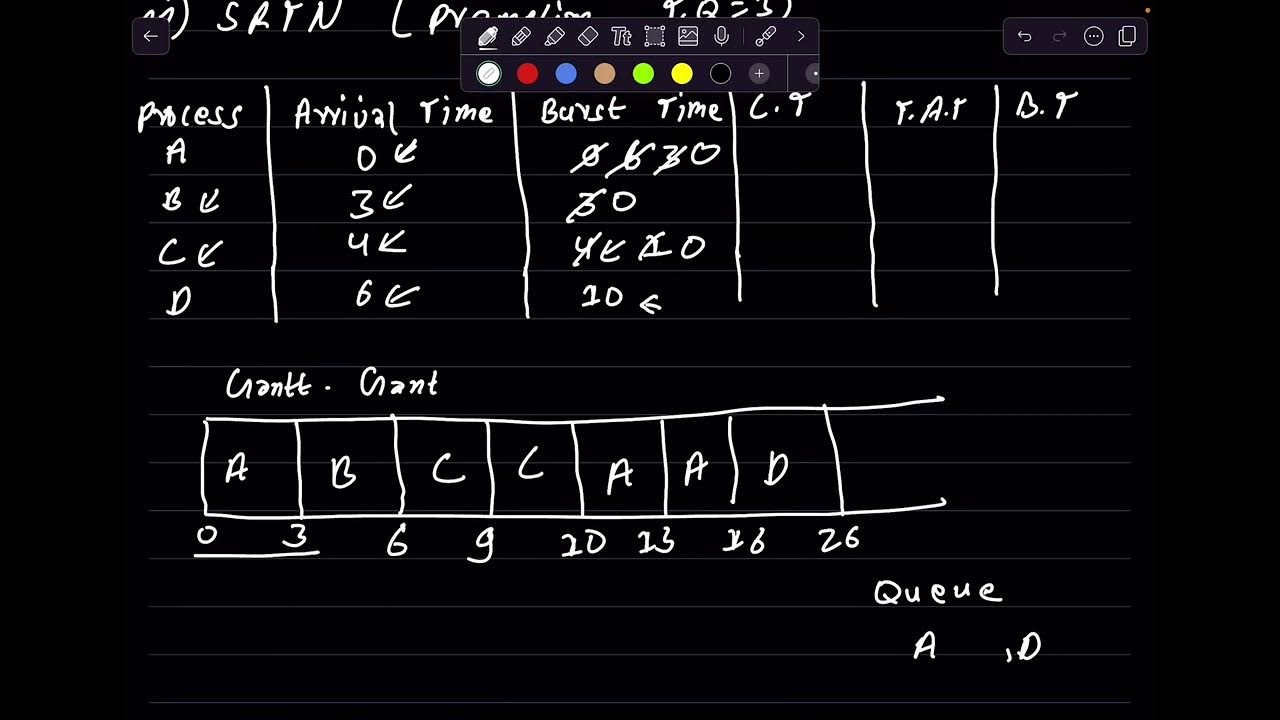 SRTN ( T.Q = 3)
Tt
Process Arrival Time Burst Time C.T T.A.T B.T
A 0 6 3 0
B 3 3 0
C 4 4 1 0
D 6 10
Gantt. Chant
A B C C A A D
0 3 6 9 10 13 16 26
Queue
A , D